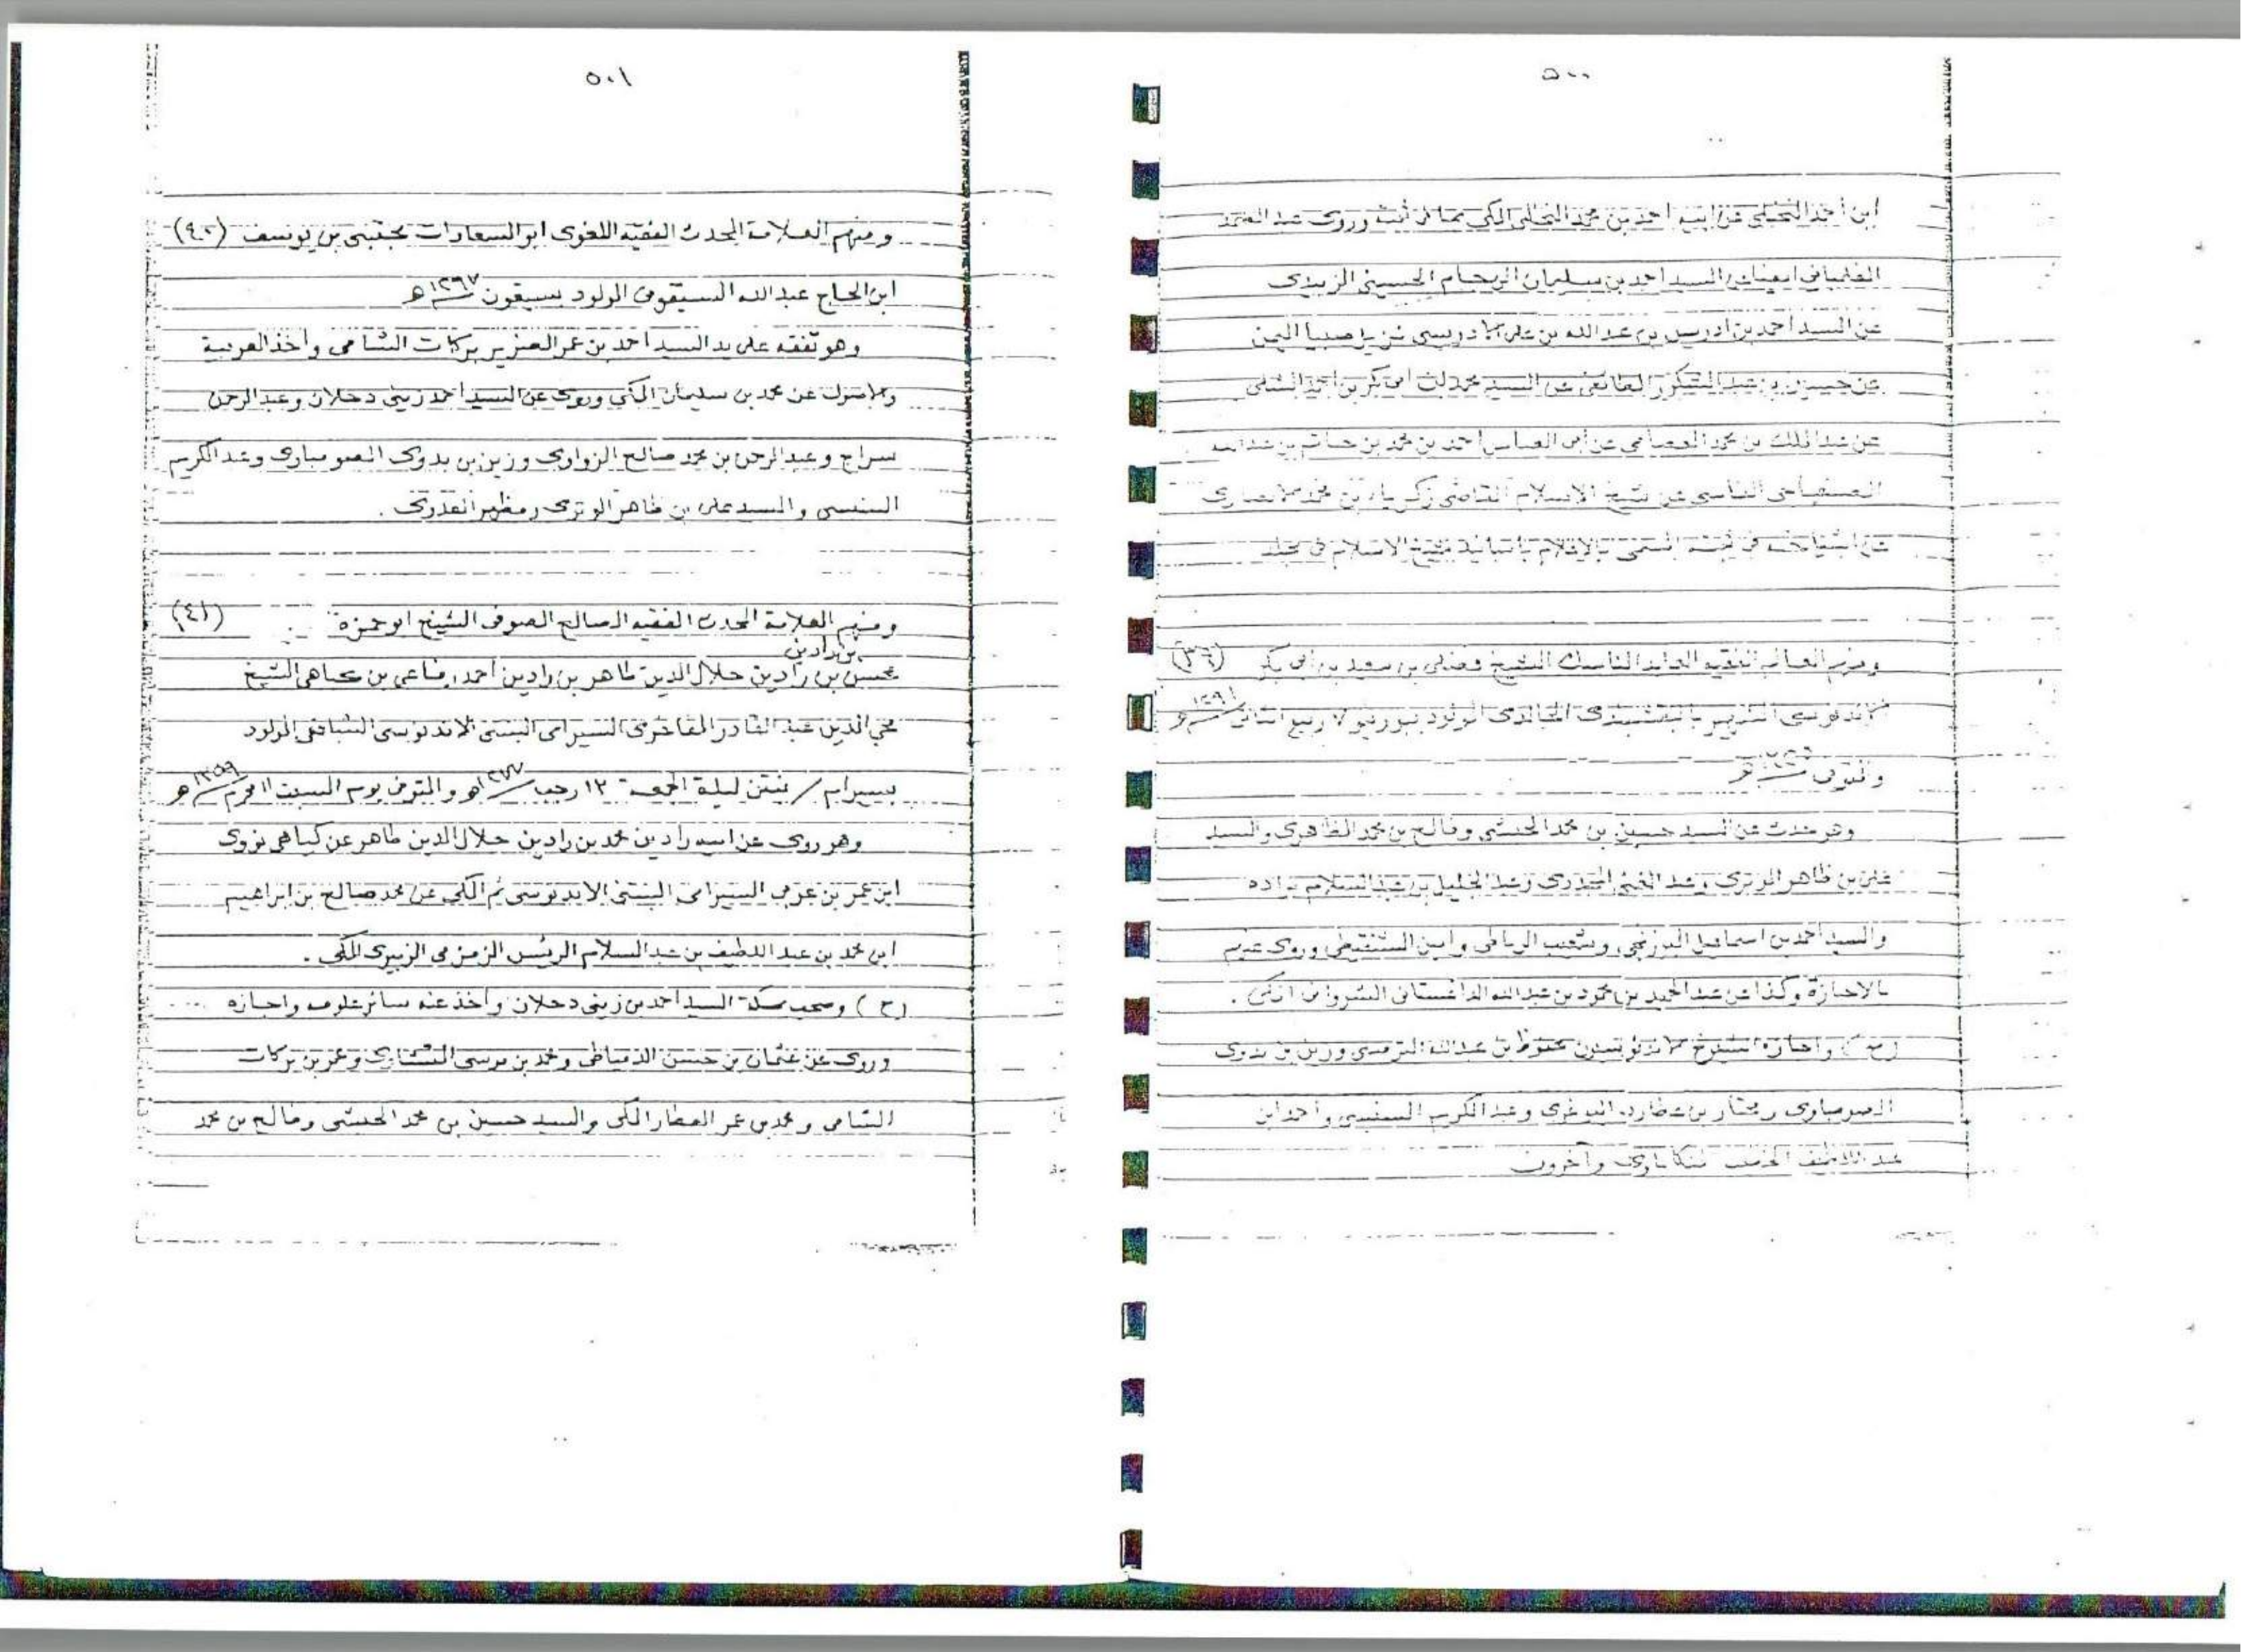 ٥٠٠
ابن أحمد النخلي عن ابيه احمد بن محمد النخلي المكي بما في ثبته وروى عبد الصمد
الفلمباني السيد احمد بن سليمان الهجام الحسيني الزبيدي
عن السيد احمد بن ادريس بن عبد الله بن علي الادريسي نزيل صبيا اليمن
عن حسين بن عبد الشكور الطائفي عن السيد محمد بن ابي بكر بن احمد الشلي
عن عبد الملك بن محمد العصامي عن أبي العباس احمد بن محمد بن
الفاسي عن شيخ الاسلام القاضي زكرياء بن محمد الانصاري
عن اشياخه في ثبته المسمى بالاعلام باسانيد شيخ الاسلام في مجلد
ومنهم العالم الفقيه العابد الناسك الشيخ فضلي بن سعيد بن ابي بكر (٣٦)
الاندنوسي الشهير بالنقشبندي الخالدي المولود ٧ ربيع الثاني ١٢٩١هـ
والمتوفى
وهو حدث عن السيد حسين بن محمد الحبشي وفالح بن محمد الظاهري والسيد
علي بن ظاهر الوتري وعبد الجليل بن عبد السلام براده
والسيد أحمد بن اسماعيل البرزنجي وشعيب الرباطي وأمين الشنقيطي وروى عنهم
بالاجازة وكذا عن عبد الحميد بن محمود بن عبد الله الداغستاني الشرواني المكي .
(ح) واجازه الشيوخ الاندنوسيون محفوظ بن عبد الله الترمسي وزين بن بدوي
الصومباوي ومختار بن عطارد البوغري وعبد الكريم السنبسي وأحمد بن
عبد اللطيف الخطيب المنكاباوي وآخرون
٥٠١
ومنهم العلامة المحدث الفقيه اللغوي ابو السعادات مجتبى بن يوسف (٤٠)
ابن الحاج عبد الله السيقوني المولود بسيقون ١٢٩٧هـ
وهو تفقه على يد السيد احمد بن عمر بركات الشامي وأخذ العربية
والاصول عن محمد بن سليمان المكي وروى عن السيد احمد زيني دحلان وعبد الرحمن
سراج وعبد الرحمن بن محمد صالح الزواوي وزين بن بدوي الصومباوي وعبد الكريم
السنبسي والسيد علي بن ظاهر الوتري ومظهر
ومنهم العلامة المحدث الفقيه الصالح الصوفي الشيخ ابو حمزة (٤١)
بن رادين
محسن بن رادين جلال الدين طاهر بن رادين احمد رفاعي بن كياهي الشيخ
محي الدين عبد القادر الفاخري السيرامي البنتني الاندنوسي الشافعي المولود
بسيرام / بنتن ليلة الجمعة ١٢ رجب ١٢٧٧هـ والمتوفى يوم السبت ١١ محرم ١٣٥٩هـ
وهو روى عن ابيه رادين محمد بن رادين جلال الدين طاهر عن كياهي نووي
ابن عمر بن عربي السيرامي البنتني الاندنوسي ثم المكي عن محمد صالح بن ابراهيم
ابن محمد بن عبد اللطيف بن عبد السلام الريس الزمزمي الزبيري المكي .
(ح) وصحب بمكة السيد أحمد بن زيني دحلان وأخذ عنه سائر علومه واجازه
وروى عن عثمان بن حسن الدمياطي ومحمد بن موسى المنشاوي وعمر بن بركات
الشامي ومحمد بن عمر العطار المكي والسيد حسين بن محمد الحبشي وفالح بن محمد